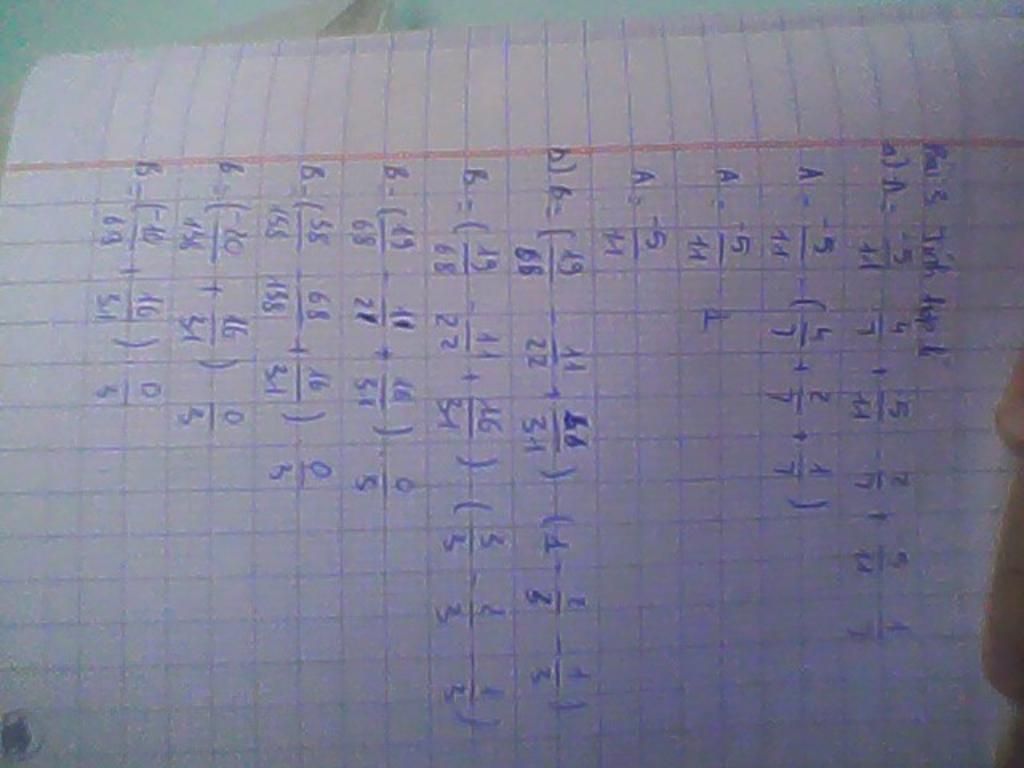 Bài 3 Tính hợp lí
a) A = -5/11 4/7 + -5/11 2/7 + -5/11 1/7
A = -5/11 - (4/7 + 2/7 + 1/7)
A = -5/11 1
A = -5/11
b) B = (19/68 - 11/22 + 16/31) (1 - 2/3 - 1/3)
B = (19/68 - 11/22 + 16/31) (3/3 - 2/3 1/3)
B = (19/68 - 11/22 + 16/31) 0/3
B = (38 68 + 16/31) 0/3
B = (-20 + 16/31) 0/3
B = (-10 + 16/31) 0/3